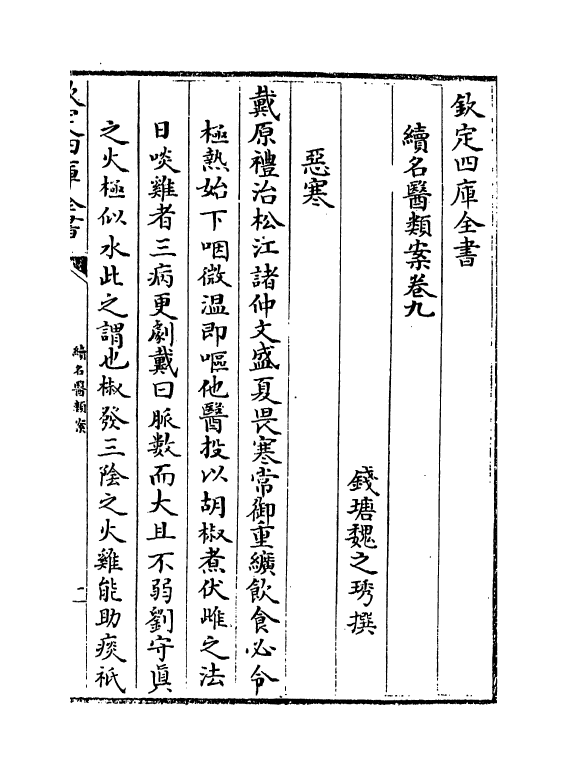 欽定四庫全書
續名醫類案卷九
錢塘魏之琇撰
惡寒
戴原禮治松江諸仲文盛夏畏寒常御重纊飲食必令
極熱始下咽微溫即嘔他醫投以胡椒煮伏雌之法
日啖雞者三病更劇戴曰脈數而大且不弱劉守眞
之火極似水此之謂也椒發三陰之火雞能助痰祇
欽定四庫全書
續名醫類案